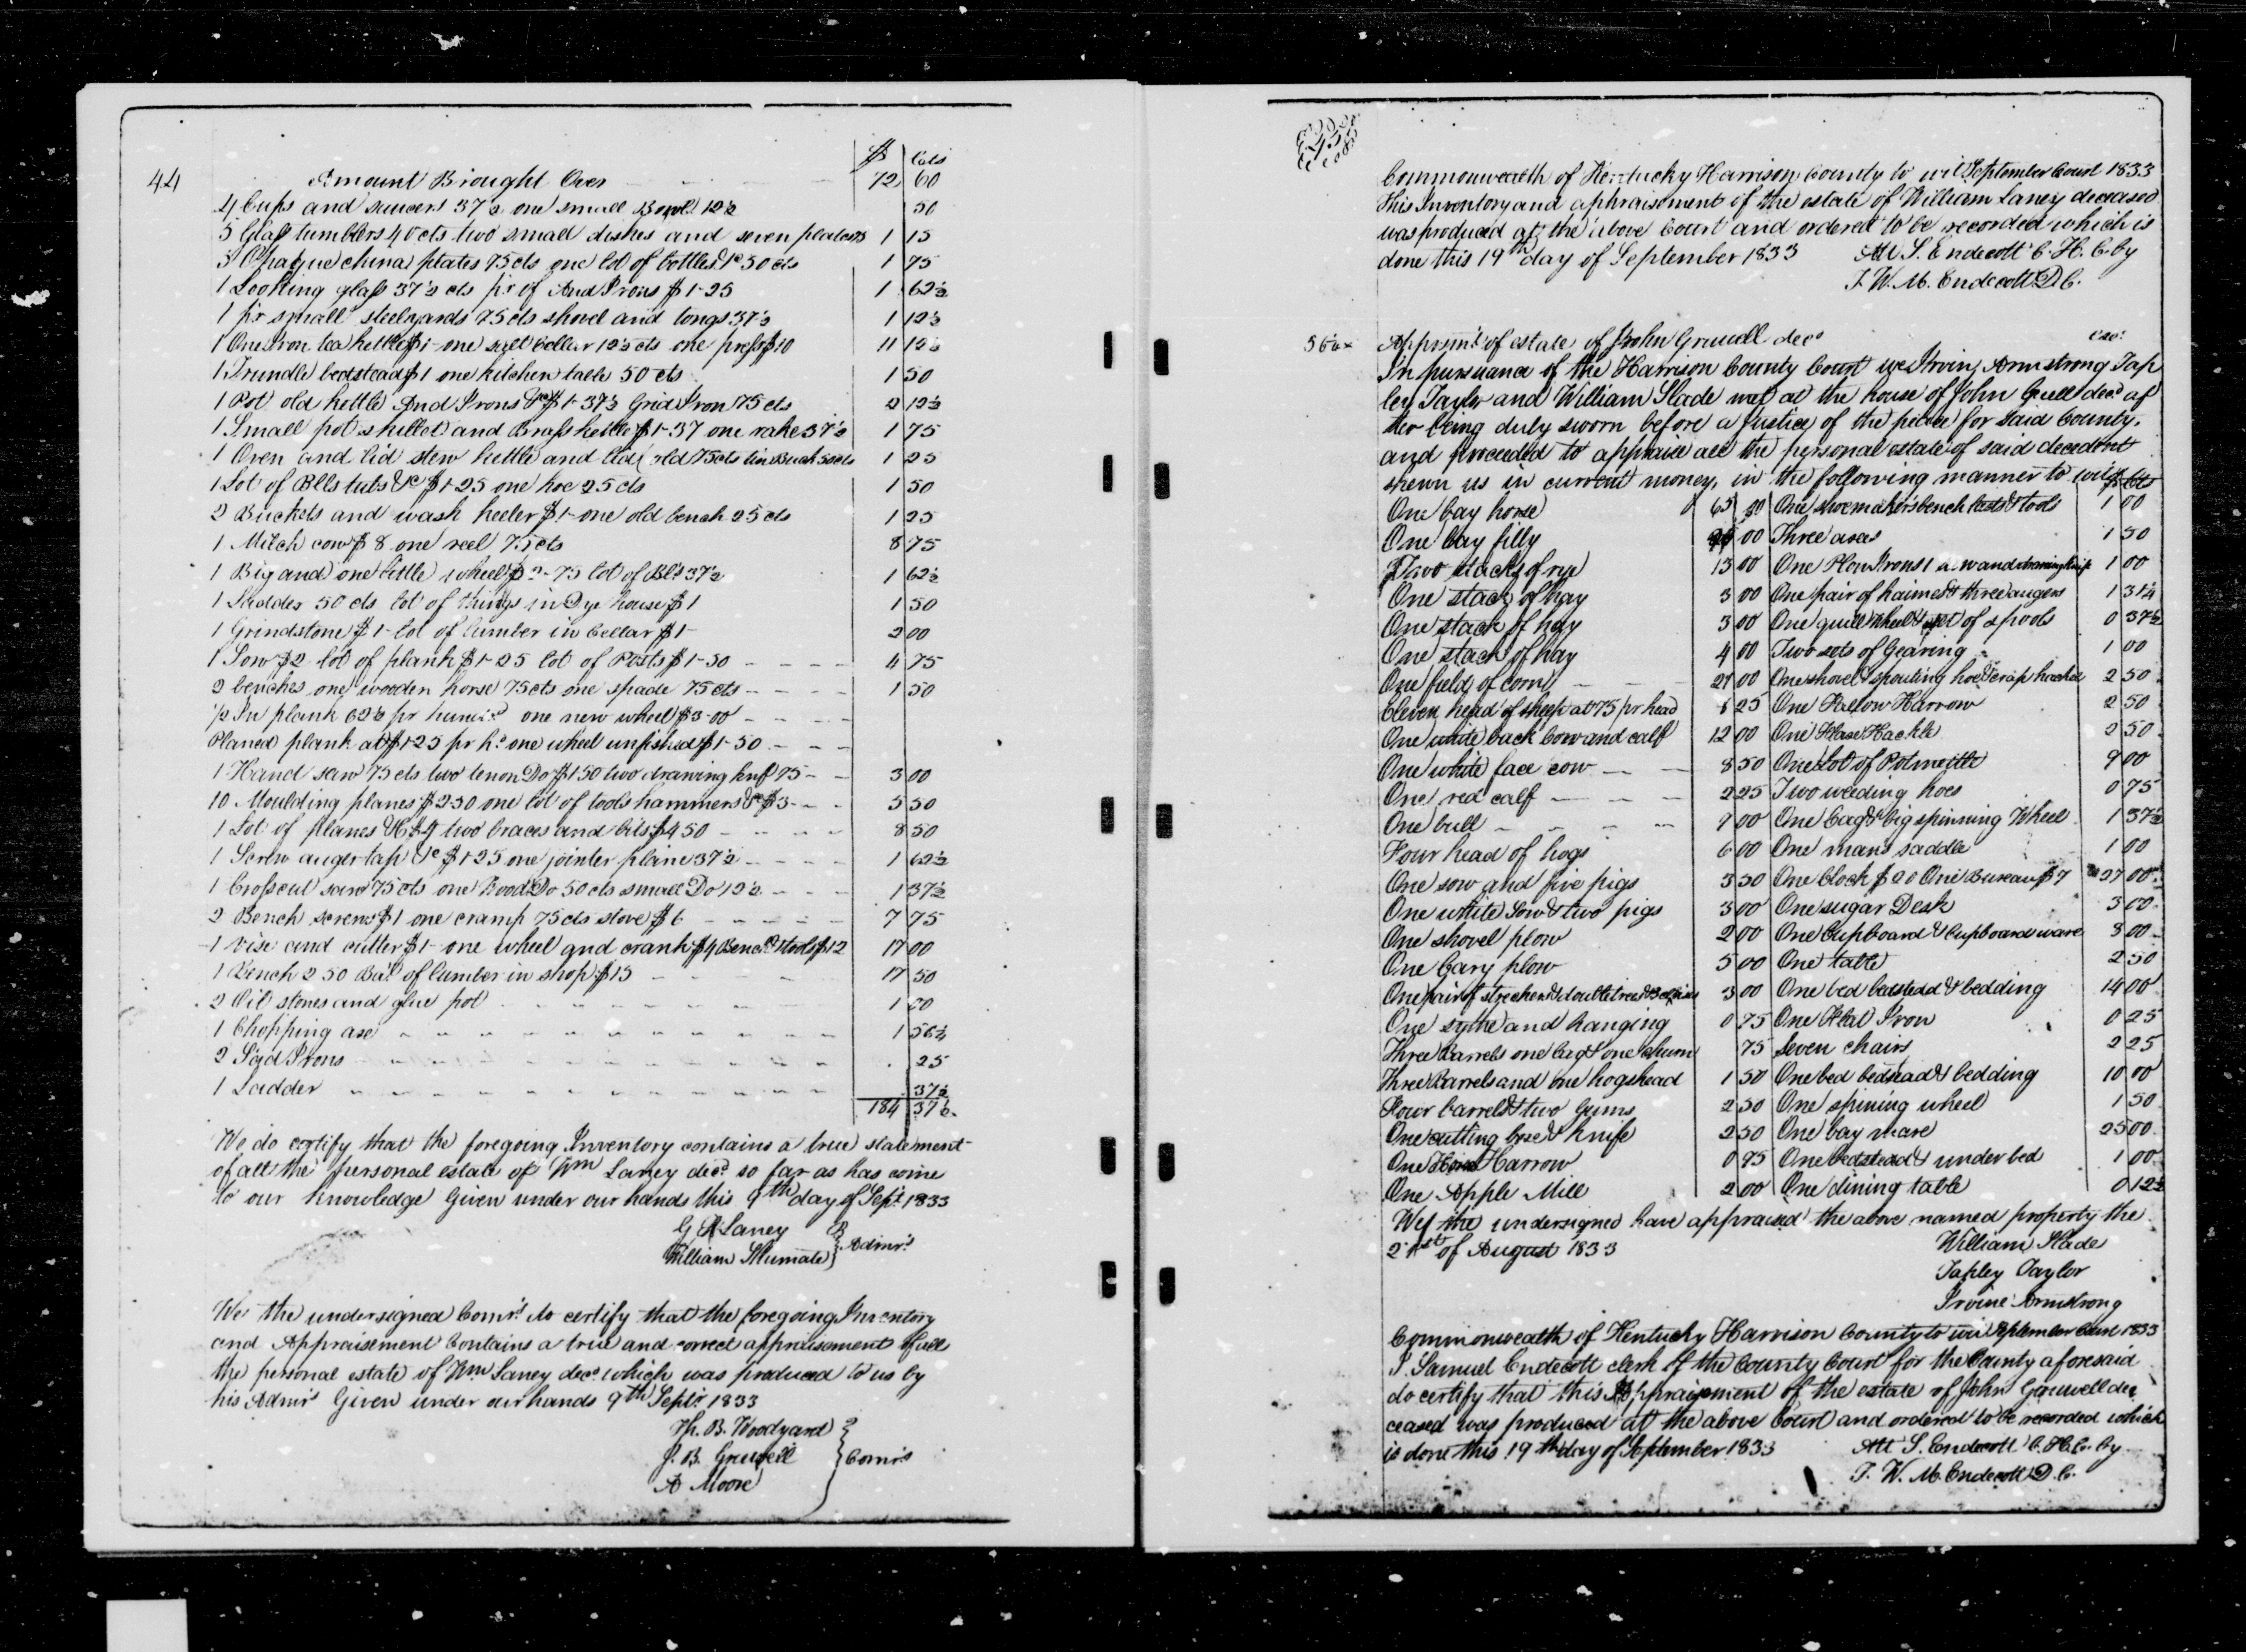 44
$ Cts
Amount Brought Over 72 60
4 Cups and saucers 37½ one small Bowl 12½ 50
5 Glass tumblers 40 cts two small dishes and seven plates 75 1 15
5 Opaque china plates 75 cts one lot of bottles &c 50 cts 1 75
1 Looking glass 37½ cts pr of And Irons $1-25 1 62½
1 pr small steelyards 75 cts shovel and tongs 37½ 1 12½
1 One Iron tea kettle $1- one salt Cellar 12½ cts one press $10 11 12½
1 Trundle bedstead $1 one kitchen table 50 cts 1 50
1 Pot old kettle And Irons &c $1-37½ Grid Iron 75 cts 2 12½
1 Small pot skillet and Brass kettle $1-37 one rake 37½ 1 75
1 Oven and lid stew kettle and lid old 75 cts tin Buck 50 cts 1 25
1 Lot of Blls tubs &c $1-25 one hoe 25 cts 1 50
2 Buckets and wash keeler $1- one old bench 25 cts 1 25
1 Milch cow $8 one reel 75 cts 8 75
1 Big and one little wheel lot of Bls 37½ 1 62½
1 Ladder 50 cts lot of things in Dye house $1 1 50
1 Grindstone $1- lot of lumber in Cellar $1- 2 00
1 Sow $2 lot of plank $1-25 lot of Posts $1-50 4 75
2 benches one wooden horse 75 cts one spade 75 cts 1 50
½ In plank 62½ pr hund one new wheel $3-00
Planed plank at $1-25 pr h one wheel unfished $1-50
1 Hand saw 75 cts two tenon Do $1 50 two drawing knf 75 3 00
10 Moulding planes $2-50 one lot of tools hammers &c $3 5 50
1 Lot of planes &c $4 two braces and bits $4 50 8 50
1 Screw auger tap &c $1-25 one jointer plane 37½ 1 62½
1 Crosscut saw 75 cts one Wood Do 50 cts small Do 12½ 1 37½
2 Bench screws $1 one cramp 75 cts stove $6 7 75
1 Vise and cutter $1- one wheel and crank $4 Bench & tools $12 17 00
1 Bench 2 50 Bal of lumber in shop $15 17 50
2 Oil stones and glue pot 1 00
1 Chopping axe 1 56¼
2 Sad Irons 25
1 Ladder 37½
184 37½
We do certify that the foregoing Inventory contains a true statement
of all the personal estate of Wm Laney decd so far as has come
to our knowledge Given under our hands this 9th day of Sept 1833
G R Laney
William Shumate } Admrs
We the undersigned Comrs do certify that the foregoing Inventory
and Appraisement Contains a true and correct appraisement of all
the personal estate of Wm Laney decd which was produced to us by
his Admrs Given under our hands 9th Septr 1833
Th. B. Woodyard
J. B. Gruwell } Comrs
A Moore
45
Commonwealth of Kentucky Harrison County to wit September Court 1833
This Inventory and aphraisement of the estate of William Laney deceased
was produced at the above Court and ordered to be recorded which is
done this 19th day of September 1833 Att S. Endecott C. H. C. by
T. W. M. Endecott D. C.
Apprmt of estate of John Gruwell decd
In pursuance of the Harrison County Court we Irvin Armstrong Tap
ley Taylor and William Slade met at the house of John Gruell decd af
ter being duly sworn before a justice of the peace for said County,
and proceeded to appraise all the personal estate of said decedent
shewn us in current money, in the following manner to wit $ cts
One bay horse 65 00 One shoemakers bench lasts & tools 1 00
One bay filly 00 Three axes 1 50
Two stacks of rye 13 00 One Plow Irons 1 saw and drawing knife 1 00
One stack of hay 3 00 One pair of haimes & three augers 1 31¼
One stack of hay 3 00 One quill wheel & set of spools 0 37½
One stack of hay 4 00 Two sets of Gearing 1 00
One field of corn 21 00 One shovel & sprouting hoe & scrap hackel 2 50
Eleven head of sheep at 75 pr head 8 25 One Fallow Harrow 2 50
One white back Cow and calf 12 00 One Flax Hackle 2 50
One white face cow 8 50 One Lot of Potmettle 9 00
One red calf 2 25 Two weeding hoes 0 75
One bull 7 00 One bag & big spinning Wheel 1 37½
Four head of hogs 6 00 One mans saddle 1 00
One sow and five pigs 3 50 One Clock $20 One Bureau $7 27 00
One white Sow & two pigs 3 00 One sugar Desk 3 00
One shovel plow 2 00 One Cupboard & Cupboard ware 8 00
One Cary plow 5 00 One table 2 50
One pair of strechers & doubletrees & 3 clevises 3 00 One bed bedstead & bedding 14 00
One sythe and hanging 0 75 One Flat Iron 0 25
Three Barrels one bag & one churn 75 Seven chairs 2 25
Three Barrels and one hogshead 1 50 One bed bedstead & bedding 10 00
Four barrels & two Gums 2 50 One spining wheel 1 50
One cutting boxe & Knife 2 50 One bay mare 25 00
One Harrow 0 75 One bedstead & under bed 1 00
One Apple Mill 2 00 One dining table 0 12½
We the undersigned have appraised the above named property the
21st of August 1833 William Slade
Tapley Taylor
Irvine Armstrong
Commonwealth of Kentucky Harrison County to wit September Court 1833
I Samuel Endecott clerk of the County Court for the County aforesaid
do certify that this Appraisment of the estate of John Gruwell de
ceased was produced at the above Court and ordered to be recorded which
is done this 19th day of September 1833 Att S. Endecott C. H. C. by
T. W. M. Endecott D. C.